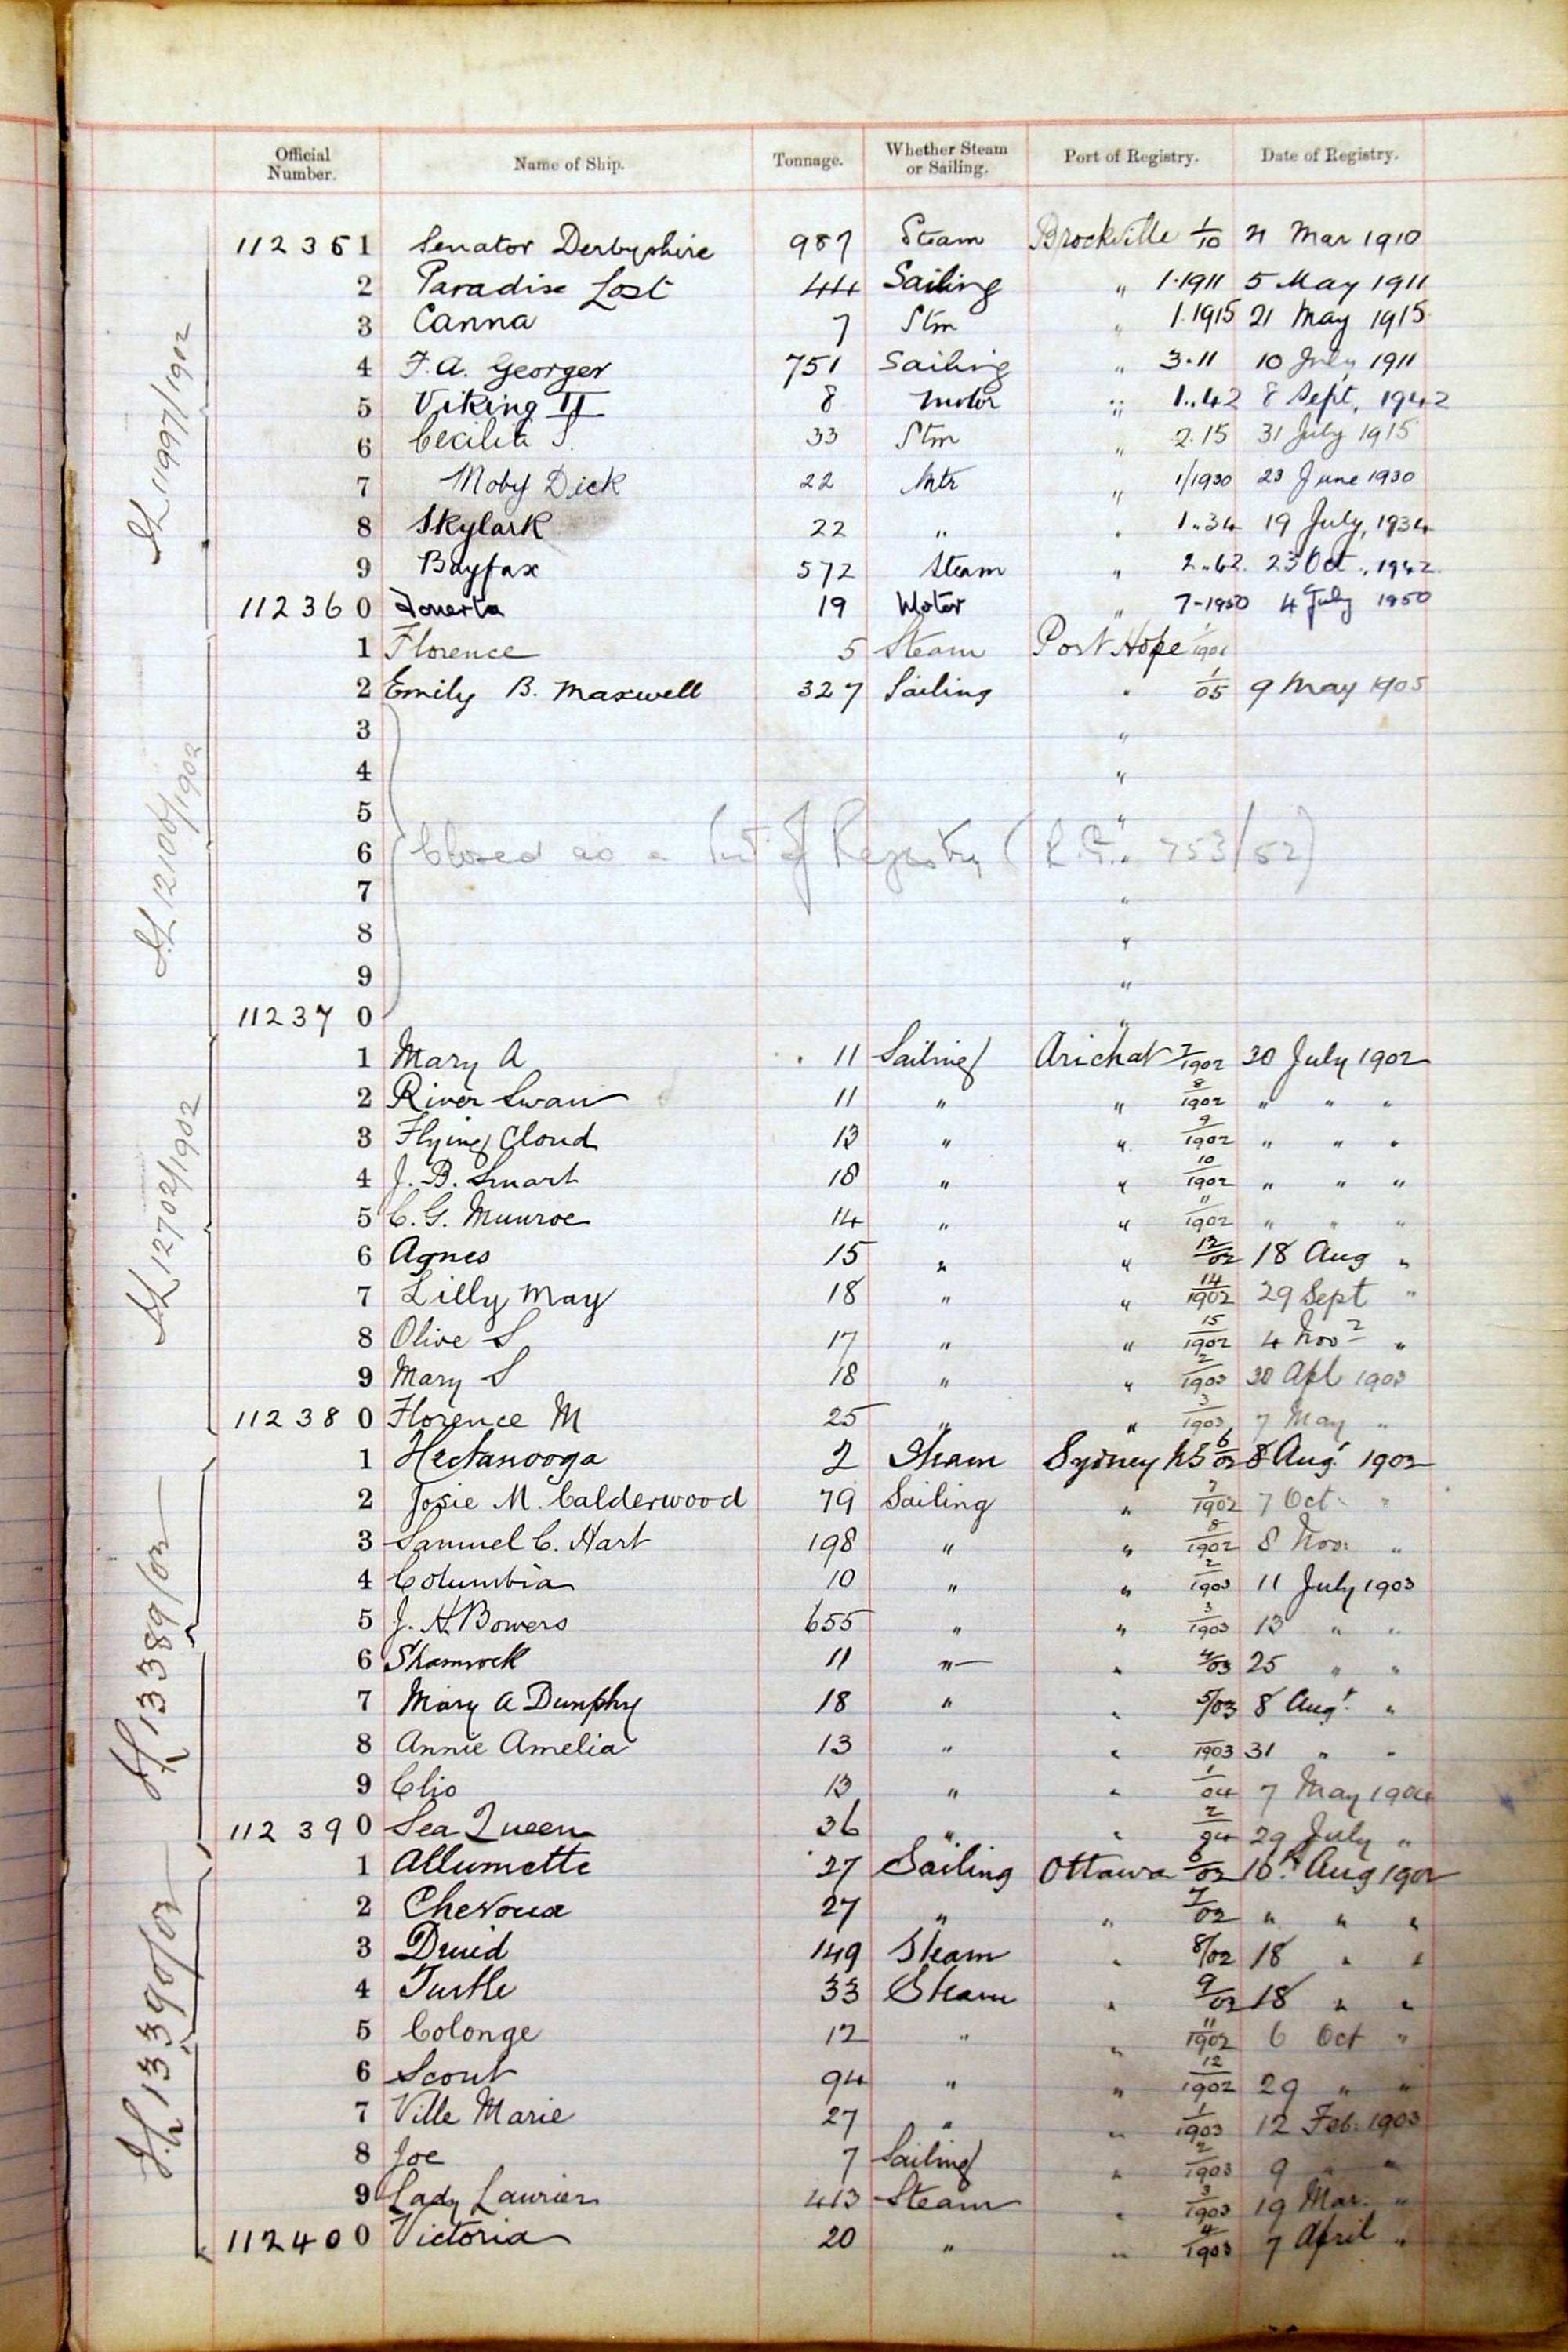 Official Number. Name of Ship. Tonnage. Whether Steam or Sailing. Port of Registry. Date of Registry.
112351 Senator Derbyshire 987 Steam Brockville 1/10 21 Mar 1910
2 Paradise Lost 44 Sailing " 1.1911 5 May 1911
3 Canna 7 Stm " 1.1915 21 May 1915
4 F. A. Georger 751 Sailing " 3.11 10 July 1911
5 Viking II 8 Motor " 1..42 8 Sept, 1942
6 Cecilia S. 33 Stm " 2.15 31 July 1915
7 Moby Dick 22 Mtr " 1/1930 23 June 1930
8 Skylark 22 " " 1..34 19 July, 1934
9 Bayfax 572 Steam " 2..42 23 Oct., 1942.
112360 19 Motor " 7-1950 4 July 1950
1 Florence 5 Steam Port Hope
2 Emily B. Maxwell 327 Sailing " 1/05 9 May 1905
3 "
4 "
5 "
6 Closed as a Port of Registry (R.G. 753/52) "
7 "
8 "
9 "
112370 "
1 Mary A 11 Sailing Arichat 7/1902 30 July 1902
2 River Swan 11 " " 8/1902 " " "
3 Flying Cloud 13 " " 9/1902 " " "
4 J. B. Smart 18 " " 10/1902 " " "
5 C. G. Munroe 14 " " 11/1902 " " "
6 Agnes 15 " " 12/02 18 Aug "
7 Lilly May 18 " " 14/1902 29 Sept "
8 Olive S 17 " " 15/1902 4 Nov "
9 Mary S 18 " " 2/1903 30 Apl 1903
112380 Florence M 25 " " 3/1903 7 May "
1 Hectanooga 2 Steam Sydney NS 6/02 8 Augt 1902
2 Josie M. Calderwood 79 Sailing " 7/1902 7 Oct. "
3 Samuel C. Hart 198 " " 8/1902 8 Nov. "
4 Columbia 10 " " 2/1903 11 July 1903
5 J. H. Bowers 655 " " 3/1903 13 " "
6 Shamrock 11 " " 4/03 25 " "
7 Mary A Dunphy 18 " " 5/03 8 Augt. "
8 Annie Amelia 13 " " 1903 31 " "
9 Clio 13 " " 1/04 7 May 1904
112390 Sea Queen 36 " " 2/04 29 July "
1 Allumette 27 Sailing Ottawa 6/02 16th Aug 1902
2 Chevoux 27 " " 7/02 " " "
3 Druid 149 Steam " 8/02 18 " "
4 Turtle 33 Steam " 9/02 18 " "
5 Colonge 12 " " 11/1902 6 Oct "
6 Scout 94 " " 12/1902 29 " "
7 Ville Marie 27 " " 1/1903 12 Feb. 1903
8 Joe 7 Sailing " 2/1903 9 " "
9 Lady Laurier 413 Steam " 3/1903 19 Mar. "
112400 Victoria 20 " " 4/1903 7 April "
11997/1902
12106/1902
12702/1902
13389/02
13390/02